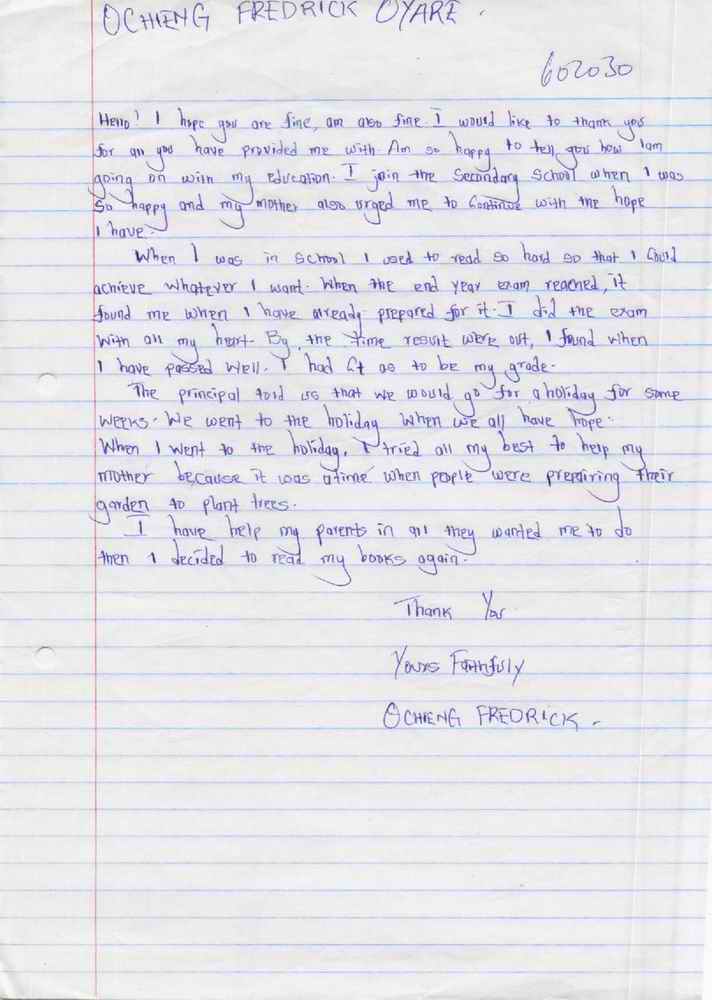 OCHIENG FREDRICK OYARE.
602030
Hello! I hope you are fine, am also fine. I would like to thank you
for all you have provided me with. Am so happy to tell you how Iam
going on with my education. I join the Secondary School when I was
So happy and my mother also urged me to Continue with the hope
I have.
When I was in school I used to read so hard so that I Could
achieve whatever I want. When the end year exam reached, it
found me when I have already prepared for it. I did the exam
with all my heart. By, the time result were out, I found when
I have passed well. I had as to be my grade.
The principal told us that we would go for a holiday for some
weeks. We went to the holiday when we all have hope.
When I went to the holiday, I tried all my best to help my
mother because it was atime when people were prepairing their
garden to plant trees.
I have help my parents in all they wanted me to do
then I decided to read my books again.
Thank You
Yours Faithfully
OCHIENG FREDRICK.